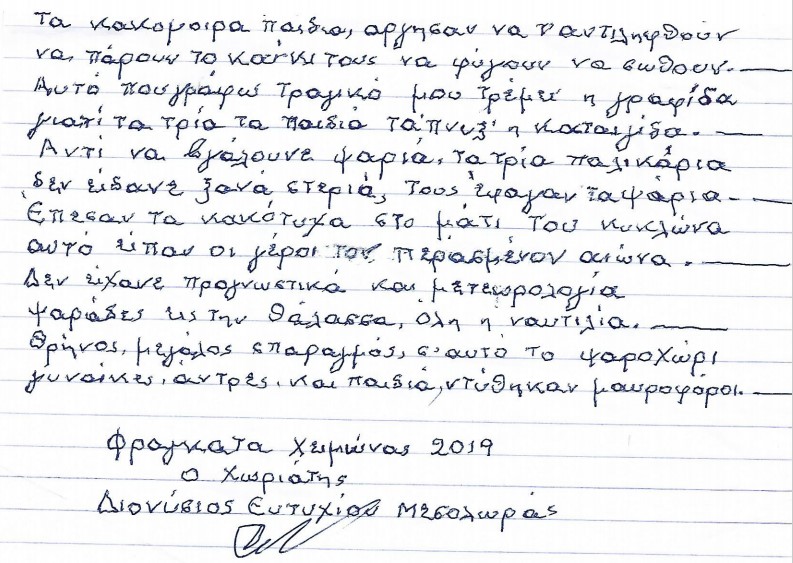 Τα κακομοιρα παιδια, αργησαν να τ' αντιληφθούν
να, πάρουν το καΐκι τους να φύγουν να σωθουν.
Αυτό που γράφω τραγικό μου τρέμει η γραφίδα
γιατί τα τρία τα παιδιά τάπνιξ' η καταιγίδα.
Αντί να βγάλουνε ψαριά, τα τρία παλικάρια
δεν είδανε ξανά στεριά, τους έφαγαν τα ψάρια
Έπεσαν τα κακότυχα στο μάτι του κυκλώνα
αυτό είπαν οι γέροι του περασμένον αιώνα.
Δεν είχανε προγνωστικά και μετεωρολογία
ψαράδες εις την θάλασσα, όλη η ναυτιλία.
Θρήνος, μεγάλος σπαραγμός, σ' αυτό το ψαροχώρι
γυναίκες, άντρες, και παιδιά, ντύθηκαν μαυροφόροι.
Φραγκατα Χειμώνας 2019
Ο Χωριάτης
Διονύσιος Ευτυχίου Μεσολωράς